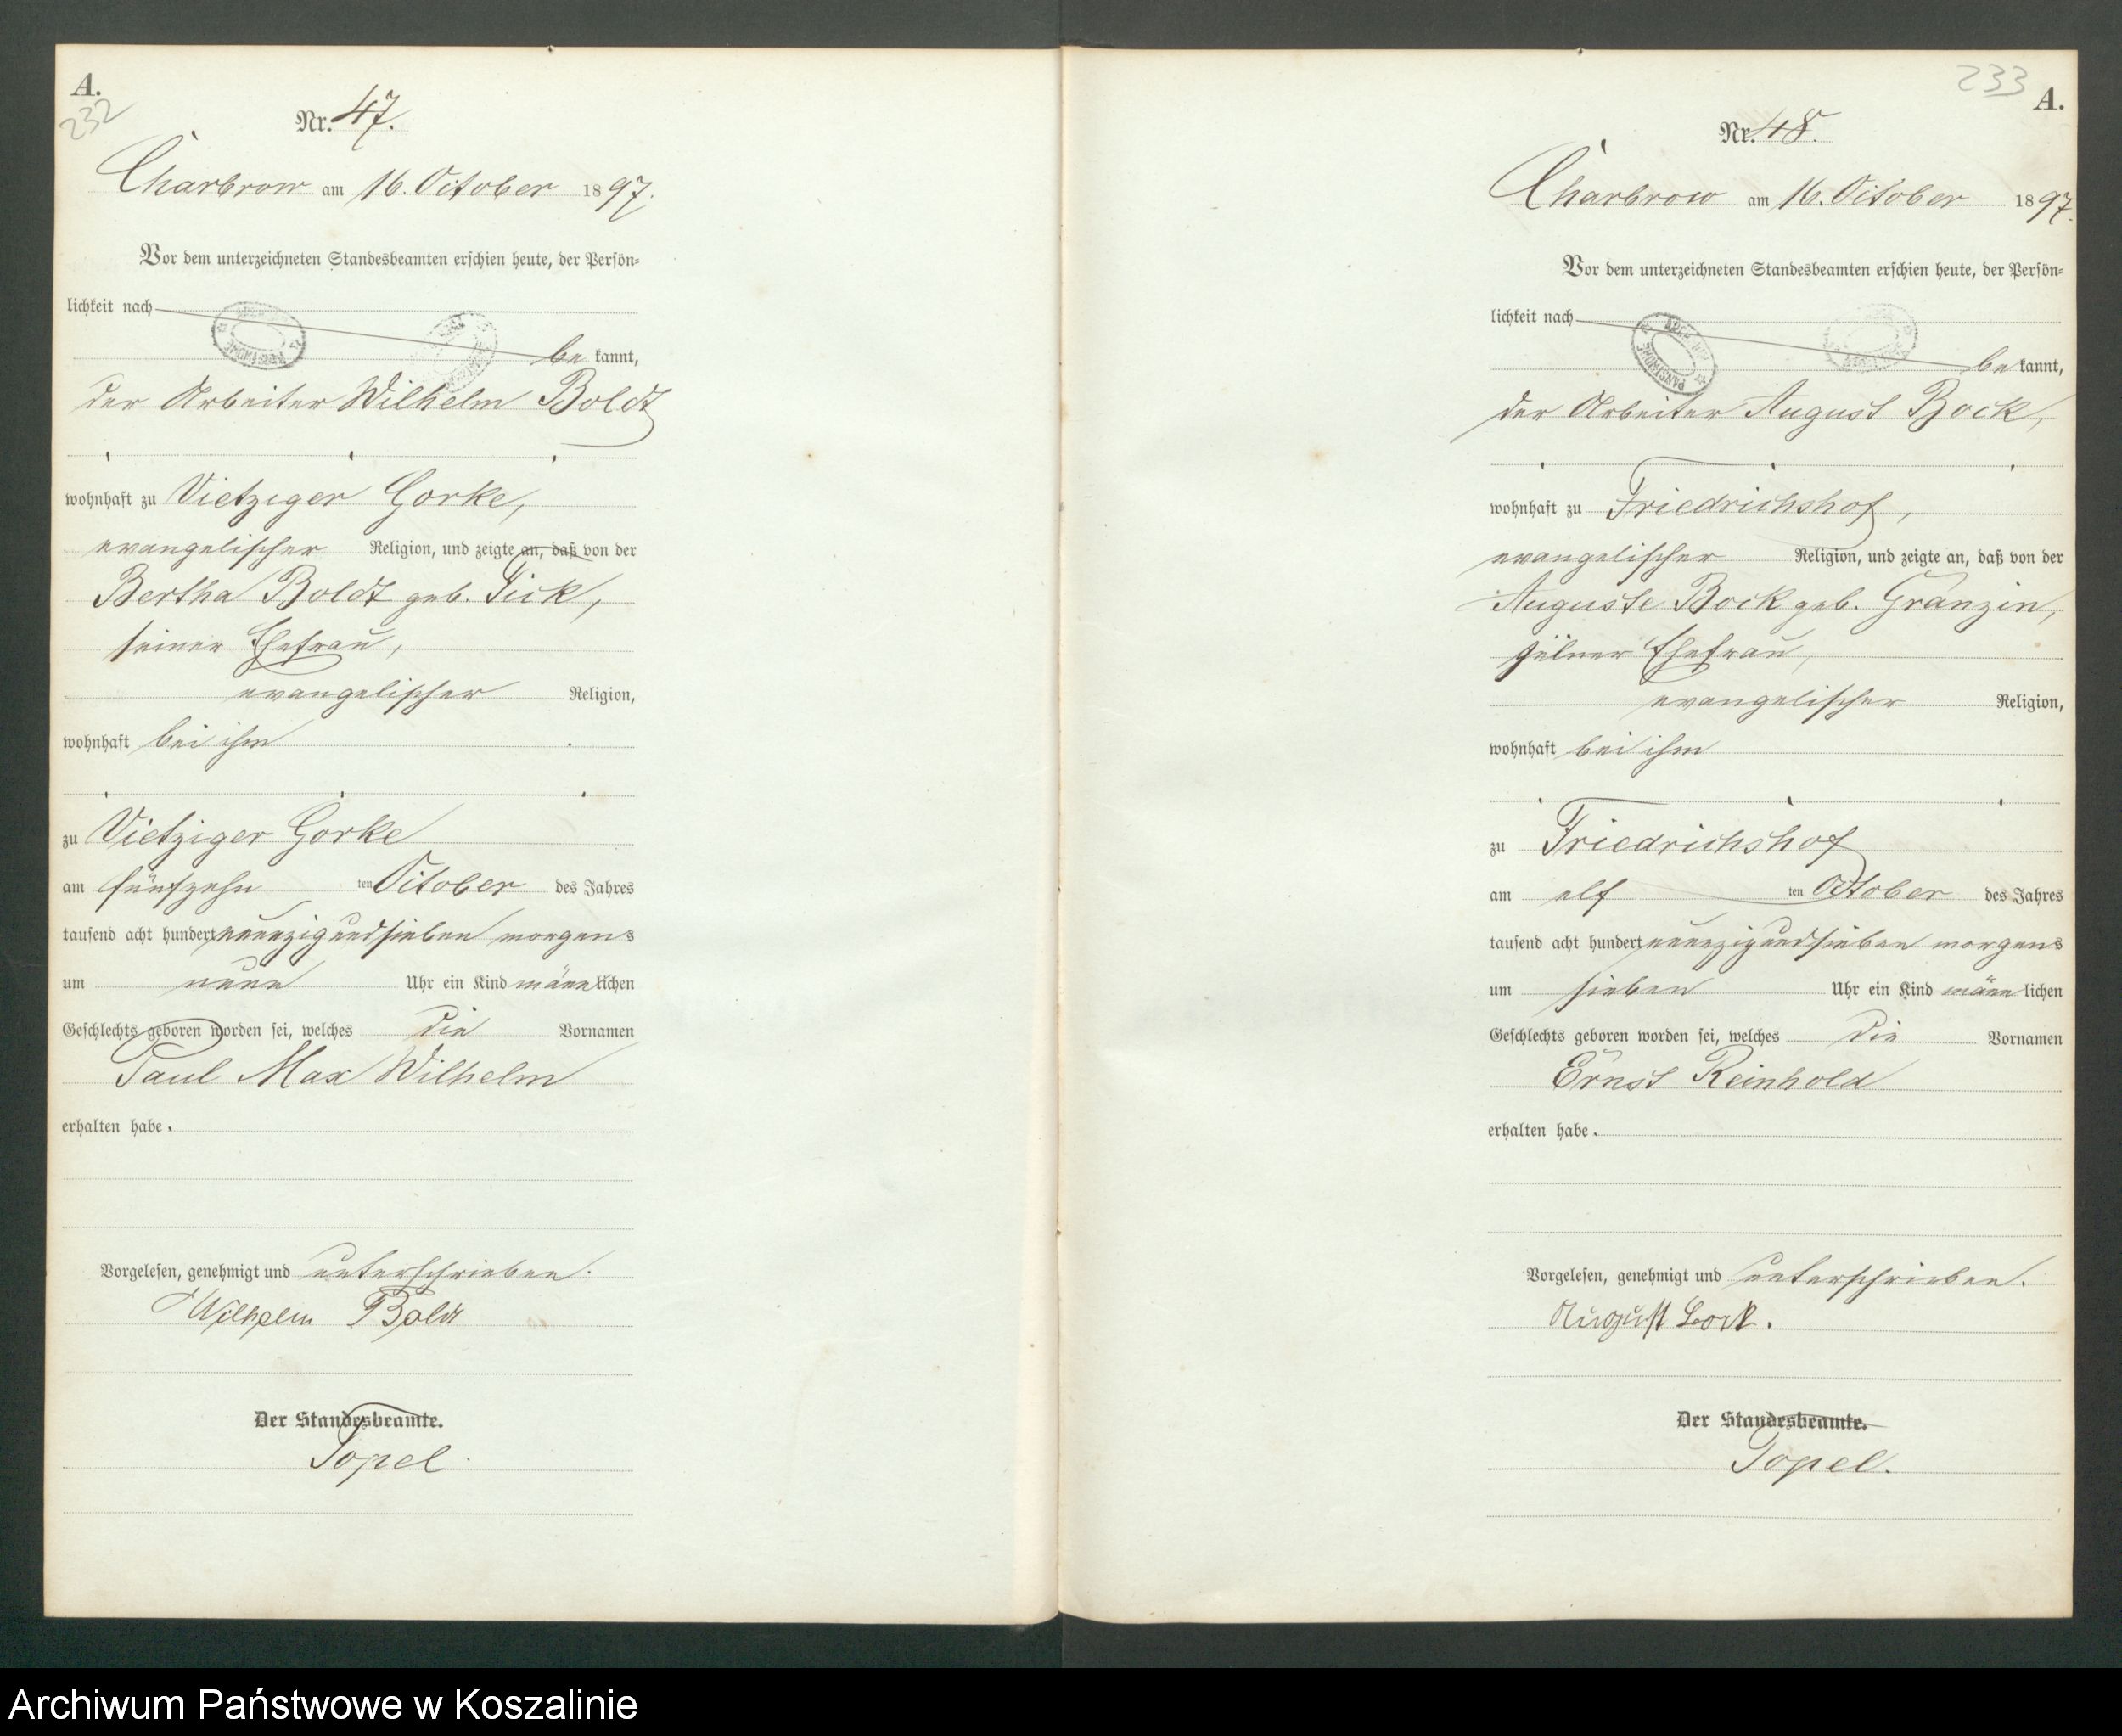 A.
232
Nr. 47.
Charbrow am 16. October 1897.
Vor dem unterzeichneten Standesbeamten erschien heute, der Persön-
lichkeit nach
be kannt,
der Arbeiter Wilhelm Boldt
wohnhaft zu Vietziger Gorke,
evangelischer Religion, und zeigte an, daß von der
Bertha Boldt geb. Pick,
seiner Ehefrau,
evangelischer Religion,
wohnhaft bei ihm
zu Vietziger Gorke
am fünfzehn ten October des Jahres
tausend acht hundert neunzig und sieben morgens
um neun Uhr ein Kind männlichen
Geschlechts geboren worden sei, welches die Vornamen
Paul Max Wilhelm
erhalten habe.
Vorgelesen, genehmigt und unterschrieben.
Wilhelm Boldt
Der Standesbeamte.
Topel.
233
A.
Nr. 48.
Charbrow am 16. October 1897.
Vor dem unterzeichneten Standesbeamten erschien heute, der Persön-
lichkeit nach
be kannt,
der Arbeiter August Bock,
wohnhaft zu Friedrichshof,
evangelischer Religion, und zeigte an, daß von der
Auguste Bock geb. Granzin,
seiner Ehefrau,
evangelischer Religion,
wohnhaft bei ihm
zu Friedrichshof
am elf ten October des Jahres
tausend acht hundert neunzig und sieben morgens
um sieben Uhr ein Kind männlichen
Geschlechts geboren worden sei, welches die Vornamen
Ernst Reinhold
erhalten habe.
Vorgelesen, genehmigt und unterschrieben.
August Bock.
Der Standesbeamte.
Topel.
Archiwum Państwowe w Koszalinie